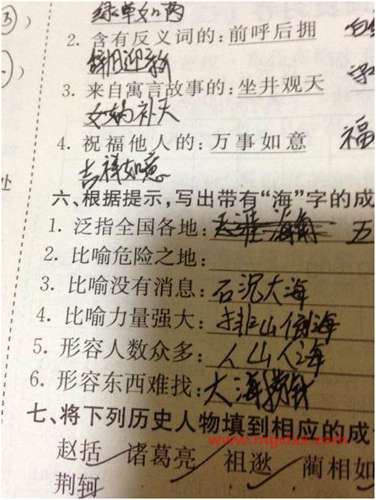 绿草如茵
2. 含有反义词的：前呼后拥
辞旧迎新
3. 来自寓言故事的：坐井观天
女娲补天
4. 祝福他人的：万事如意 福
吉祥如意
处
六、根据提示，写出带有“海”字的成
1. 泛指全国各地： 五
2. 比喻危险之地：
3. 比喻没有消息：石沉大海
4. 比喻力量强大：排山倒海
5. 形容人数众多：人山人海
6. 形容东西难找：大海捞针
七、将下列历史人物填到相应的成
赵括 诸葛亮 祖逖 蔺相如
荆轲